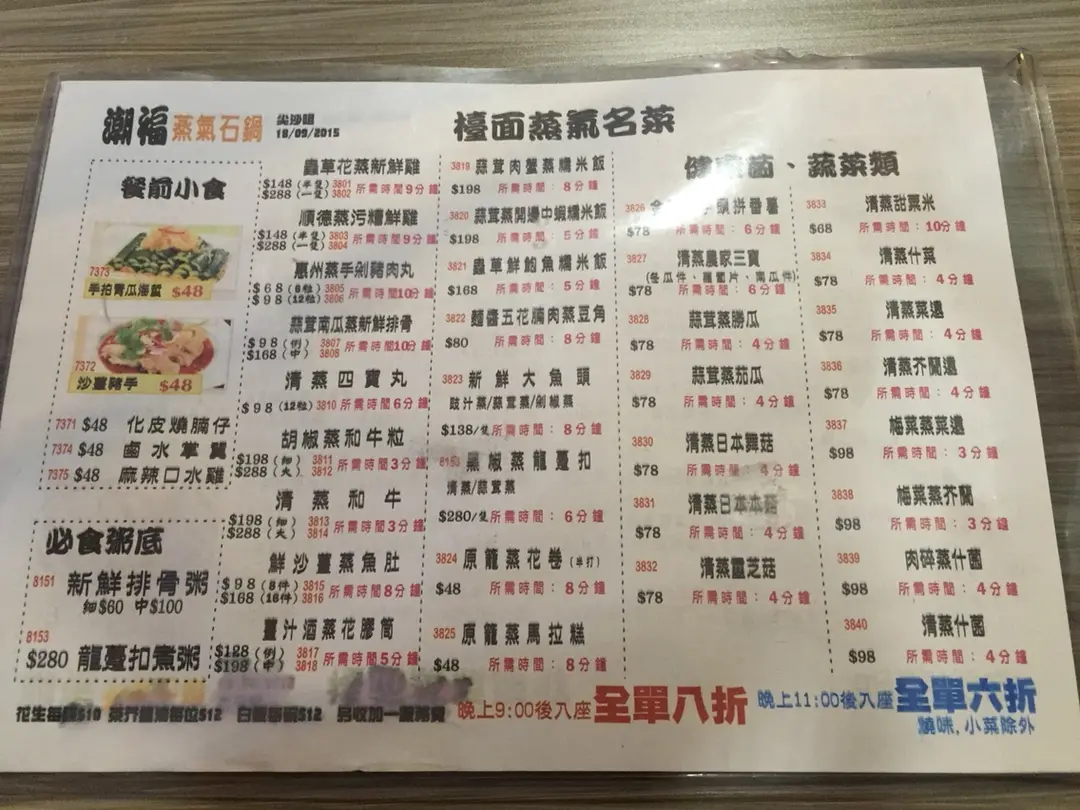 潮福 蒸氣石鍋
尖沙咀
18/09/2015
檯面蒸氣名菜
餐前小食
7373
手拍青瓜海蜇 $48
7372
沙薑豬手 $48
7371 $48 化皮燒腩仔
7374 $48 鹵水掌翼
7375 $48 麻辣口水雞
必食粥底
8151 新鮮排骨粥
細$60 中$100
8153
$280 龍躉扣煮粥
蟲草花蒸新鮮雞
$148 (半隻) 3801
$288 (一隻) 3802 所需時間9分鐘
順德蒸污糟鮮雞
$148 (半隻) 3803
$288 (一隻) 3804 所需時間9分鐘
惠州蒸手剁豬肉丸
$68 (8粒) 3805
$98 (12粒) 3806 所需時間10分鐘
蒜茸南瓜蒸新鮮排骨
$98 (例) 3807
$168 (中) 3808 所需時間10分鐘
清蒸四寶丸
$98 (12粒) 3810 所需時間6分鐘
胡椒蒸和牛粒
$198 (細) 3811
$288 (大) 3812 所需時間3分鐘
清蒸和牛
$198 (細) 3813
$288 (大) 3814 所需時間3分鐘
鮮沙薑蒸魚肚
$98 (8件) 3815
$168 (16件) 3816 所需時間8分鐘
薑汁酒蒸花膠筒
$128 (例) 3817
$198 (中) 3818 所需時間5分鐘
3819 蒜茸肉蟹蒸糯米飯
$198 所需時間：8分鐘
3820 蒜茸蒸開邊中蝦糯米飯
$198 所需時間：5分鐘
3821 蟲草鮮鮑魚糯米飯
$168 所需時間：5分鐘
3822 麵醬五花腩肉蒸豆角
$80 所需時間：8分鐘
3823 新鮮大魚頭
豉汁蒸/蒜茸蒸/剁椒蒸
$138/隻 所需時間：8分鐘
8153 黑椒蒸龍躉扣
清蒸/蒜茸蒸
$280/隻 所需時間：6分鐘
3824 原籠蒸花卷 (半打)
$48 所需時間：8分鐘
3825 原籠蒸馬拉糕
$48 所需時間：8分鐘
健 菌、蔬菜類
3826 拼番薯
$78 所需時間：6分鐘
3827 清蒸農家三寶
(冬瓜件、蘿蔔片、南瓜件)
$78 所需時間：6分鐘
3828 蒜茸蒸勝瓜
$78 所需時間：4分鐘
3829 蒜茸蒸茄瓜
$78 所需時間：4分鐘
3830 清蒸日本舞菇
$78 所需時間：4分鐘
3831 清蒸日本本菇
$78 所需時間：4分鐘
3832 清蒸靈芝菇
$78 所需時間：4分鐘
3833 清蒸甜粟米
$68 所需時間：10分鐘
3834 清蒸什菜
$78 所需時間：4分鐘
3835 清蒸菜遠
$78 所需時間：4分鐘
3836 清蒸芥蘭遠
$78 所需時間：4分鐘
3837 梅菜蒸菜遠
$98 所需時間：3分鐘
3838 梅菜蒸芥蘭
$98 所需時間：3分鐘
3839 肉碎蒸什菌
$98 所需時間：4分鐘
3840 清蒸什菌
$98 所需時間：4分鐘
花生每碟$10 茶芥 每位$12 白飯每碗$12 另收加一服務費
晚上9:00後入座 全單八折
晚上11:00後入座 全單六折
燒味,小菜除外